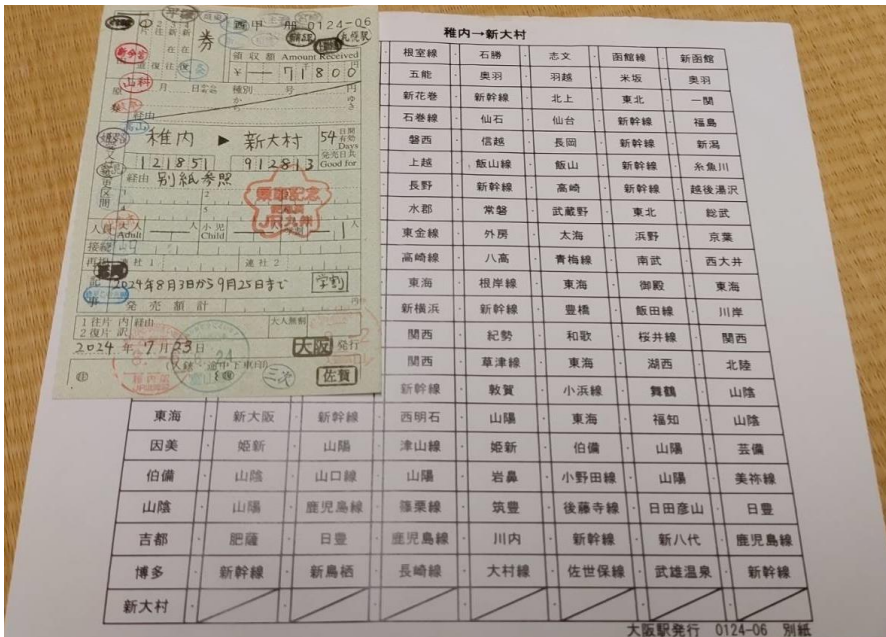 券
0124-06
札幌駅
領収額 Amount Received
¥ 71800
新今宮
山科
月 日 種別 号
経由
稚内 ▶ 新大村
54 日間有効 Days
121851 912813
発売日共 Good for
経由 別紙参照
区間
乗車記念
JR九州
人員 大人 Adult 人 小児 Child 人 学割 1 人
接続
連社1 連社2
2024年8月3日から9月25日まで 学割
記事
発売額計
1往片 内 経由
2復片 訳
大人無割
2024年7月23日 大阪 発行
三次 佐賀
稚内→新大村
根室線 ・ 石勝 ・ 志文 ・ 函館線 ・ 新函館
五能 ・ 奥羽 ・ 羽越 ・ 米坂 ・ 奥羽
新花巻 ・ 新幹線 ・ 北上 ・ 東北 ・ 一関
石巻線 ・ 仙石 ・ 仙台 ・ 新幹線 ・ 福島
磐西 ・ 信越 ・ 長岡 ・ 新幹線 ・ 新潟
上越 ・ 飯山線 ・ 飯山 ・ 新幹線 ・ 糸魚川
長野 ・ 新幹線 ・ 高崎 ・ 新幹線 ・ 越後湯沢
水郡 ・ 常磐 ・ 武蔵野 ・ 東北 ・ 総武
東金線 ・ 外房 ・ 太海 ・ 浜野 ・ 京葉
高崎線 ・ 八高 ・ 青梅線 ・ 南武 ・ 西大井
東海 ・ 根岸線 ・ 東海 ・ 御殿 ・ 東海
新横浜 ・ 新幹線 ・ 豊橋 ・ 飯田線 ・ 川岸
関西 ・ 紀勢 ・ 和歌 ・ 桜井線 ・ 関西
関西 ・ 草津線 ・ 東海 ・ 湖西 ・ 北陸
新幹線 ・ 敦賀 ・ 小浜線 ・ 舞鶴 ・ 山陰
東海 ・ 新大阪 ・ 新幹線 ・ 西明石 ・ 山陽 ・ 東海 ・ 福知 ・ 山陰
因美 ・ 姫新 ・ 山陽 ・ 津山線 ・ 姫新 ・ 伯備 ・ 山陽 ・ 芸備
伯備 ・ 山陰 ・ 山口線 ・ 山陽 ・ 岩鼻 ・ 小野田線 ・ 山陽 ・ 美祢線
山陰 ・ 山陽 ・ 鹿児島線 ・ 篠栗線 ・ 筑豊 ・ 後藤寺線 ・ 日田彦山 ・ 日豊
吉都 ・ 肥薩 ・ 日豊 ・ 鹿児島線 ・ 川内 ・ 新幹線 ・ 新八代 ・ 鹿児島線
博多 ・ 新幹線 ・ 新鳥栖 ・ 長崎線 ・ 大村線 ・ 佐世保線 ・ 武雄温泉 ・ 新幹線
新大村
大阪駅発行 0124-06 別紙